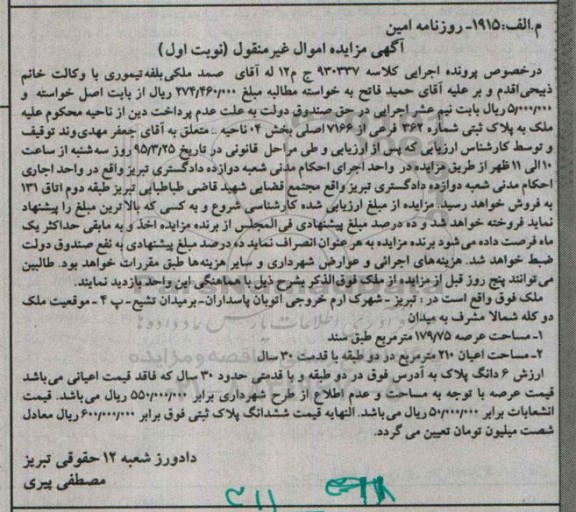 م.الف:۱۹۱۵- روزنامه امین
آگهی مزایده اموال غیرمنقول (نوبت اول)
درخصوص پرونده اجرایی کلاسه ۹۳۰۳۳۷ ج م۱۲ له آقای صمد ملکی‌یلفه‌تیموری با وکالت خانم
ذبیحی‌اقدم و بر علیه آقای حمید فاتح به خواسته مطالبه مبلغ ۲۷۴/۴۶۰/۰۰۰ ریال از بابت اصل خواسته و
۵/۰۰۰/۰۰۰ ریال بابت نیم عشر اجرایی در حق صندوق دولت به علت عدم پرداخت دین از ناحیه محکوم علیه
ملک به پلاک ثبتی شماره ۳۶۲ فرعی از ۷۱۶۶ اصلی بخش ۰۴ ناحیه .. متعلق به آقای جعفر مهدی‌وند توقیف
و توسط کارشناس ارزیابی که پس از ارزیابی و طی مراحل قانونی در تاریخ ۹۵/۳/۲۵ روز سه‌شنبه از ساعت
۱۰ الی ۱۱ ظهر از طریق مزایده در واحد اجرای احکام مدنی شعبه دوازده دادگستری تبریز واقع در واحد اجاری
احکام مدنی شعبه دوازده دادگستری تبریز واقع مجتمع قضایی شهید قاضی طباطبایی تبریز طبقه دوم اتاق ۱۳۱
به فروش خواهد رسید. مزایده از مبلغ ارزیابی شده کارشناسی شروع و به کسی که بالاترین مبلغ را پیشنهاد
نماید فروخته خواهد شد و ده درصد مبلغ پیشنهادی فی‌المجلس از برنده مزایده اخذ و به مابقی حداکثر یک
ماه فرصت داده می‌شود برنده مزایده به هر عنوان انصراف نماید ده درصد مبلغ پیشنهادی به نفع صندوق دولت
ضبط خواهد شد. هزینه‌های اجرائی و عوارض شهرداری و سایر هزینه‌ها طبق مقررات خواهد بود. طالبین
می‌توانند پنج روز قبل از مزایده از ملک فوق‌الذکر بشرح ذیل با هماهنگی این واحد بازدید نمایند.
ملک فوق واقع است در: تبریز - شهرک ارم خروجی اتوبان پاسداران- برمیدان تشیع- پ ۴ - موقعیت ملک
دو کله شمالا مشرف به میدان
۱- مساحت عرصه ۱۷۹/۷۵ مترمربع طبق سند
۲- مساحت اعیان ۲۱۰ مترمربع در دو طبقه با قدمت ۳۰ سال
ارزش ۶ دانگ پلاک به آدرس فوق در دو طبقه و با قدمتی حدود ۳۰ سال که فاقد قیمت اعیانی می‌باشد
قیمت عرصه با توجه به مساحت و عدم اطلاع از طرح شهرداری برابر ۵۵۰/۰۰۰/۰۰۰ ریال می‌باشد. قیمت
انشعابات برابر ۵۰/۰۰۰/۰۰۰ ریال می‌باشد. النهایه قیمت ششدانگ پلاک ثبتی فوق برابر ۶۰۰/۰۰۰/۰۰۰ ریال معادل
شصت میلیون تومان تعیین می گردد.
دادورز شعبه ۱۲ حقوقی تبریز
مصطفی پیری